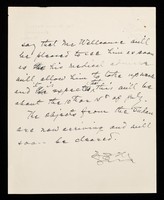 say that Mr Wellcome will
be pleased to see him as soon
as his medical
will allow him to take up work
and the expects this will be
about the the 1st of July.
The objects from the
are now arriving and will
soon be cleared.